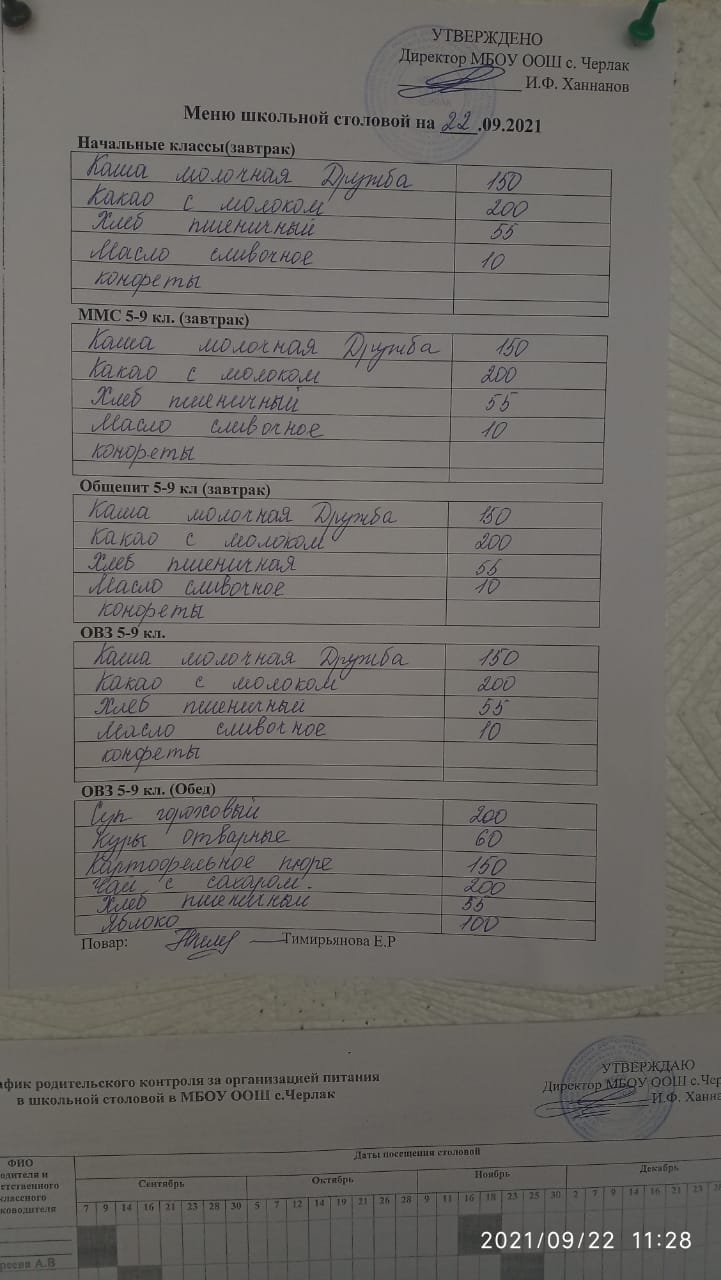 УТВЕРЖДЕНО
Директор МБОУ ООШ с. Черлак
И.Ф. Ханнанов
ЧЕРЛАК
Меню школьной столовой на 22.09.2021
Начальные классы(завтрак)
Каша молочная Дружба 150
Какао с молоком 200
Хлеб пшеничный 55
Масло сливочное 10
конфеты
ММС 5-9 кл. (завтрак)
Каша молочная Дружба 150
Какао с молоком 200
Хлеб пшеничный 55
Масло сливочное 10
конфеты
Общепит 5-9 кл (завтрак)
Каша молочная Дружба 150
Какао с молоком 200
Хлеб пшеничная 55
Масло сливочное 10
конфеты
ОВЗ 5-9 кл.
Каша молочная Дружба 150
Какао с молоком 200
Хлеб пшеничный 55
Масло сливочное 10
конфеты
ОВЗ 5-9 кл. (Обед)
Суп гороховый 200
Куры отварные 60
Картофельное пюре 150
Чай с сахаром. 200
Хлеб пшеничный 55
Яблоко 100
Повар: Тимирьянова Е.Р
УТВЕРЖДАЮ
Директор МБОУ ООШ с.Чер
И.Ф. Ханна
афик родительского контроля за организацией питания
в школьной столовой в МБОУ ООШ с.Черлак
ФИО
одителя и
етственного
классного
ководителя
Даты посещения столовой
Сентябрь Октябрь Ноябрь Декабрь
7 9 14 16 21 23 28 30 5 7 12 14 19 21 26 28 9 11 16 18 23 25 30 2 7 9 14 16 21 23
реева А.В
2021/09/22 11:28